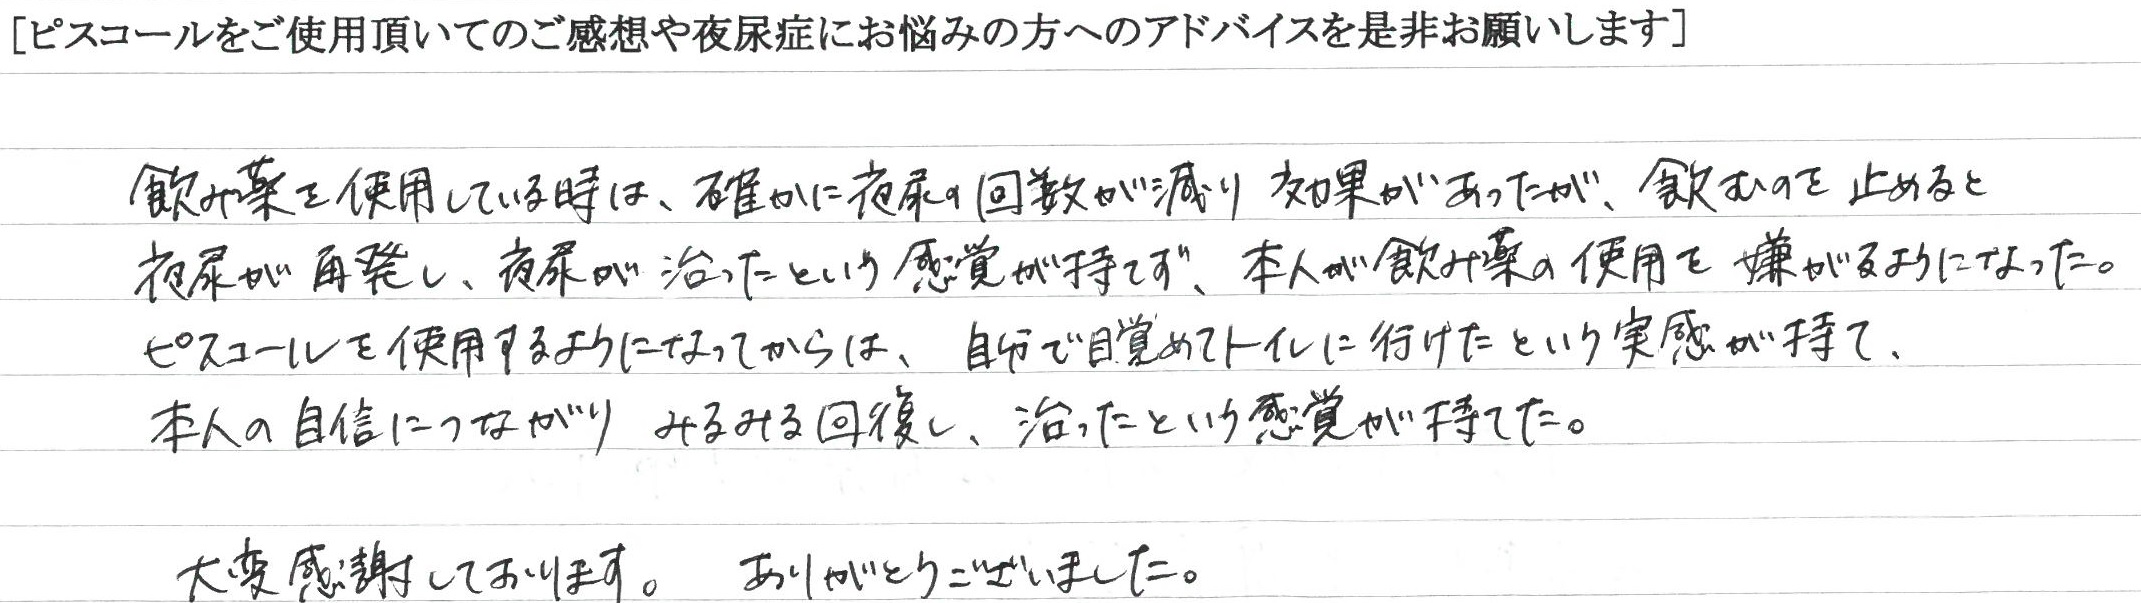 [ピスコールをご使用頂いてのご感想や夜尿症にお悩みの方へのアドバイスを是非お願いします]
飲み薬を使用している時は、確かに夜尿の回数が減り 効果があったが、飲むのを止めると
夜尿が再発し、夜尿が治ったという感覚が持てず、本人が飲み薬の使用を嫌がるようになった。
ピスコールを使用するようになってからは、自分で目覚めてトイレに行けたという実感が持て、
本人の自信につながり みるみる回復し、治ったという感覚が持てた。
大変感謝しております。 ありがとうございました。